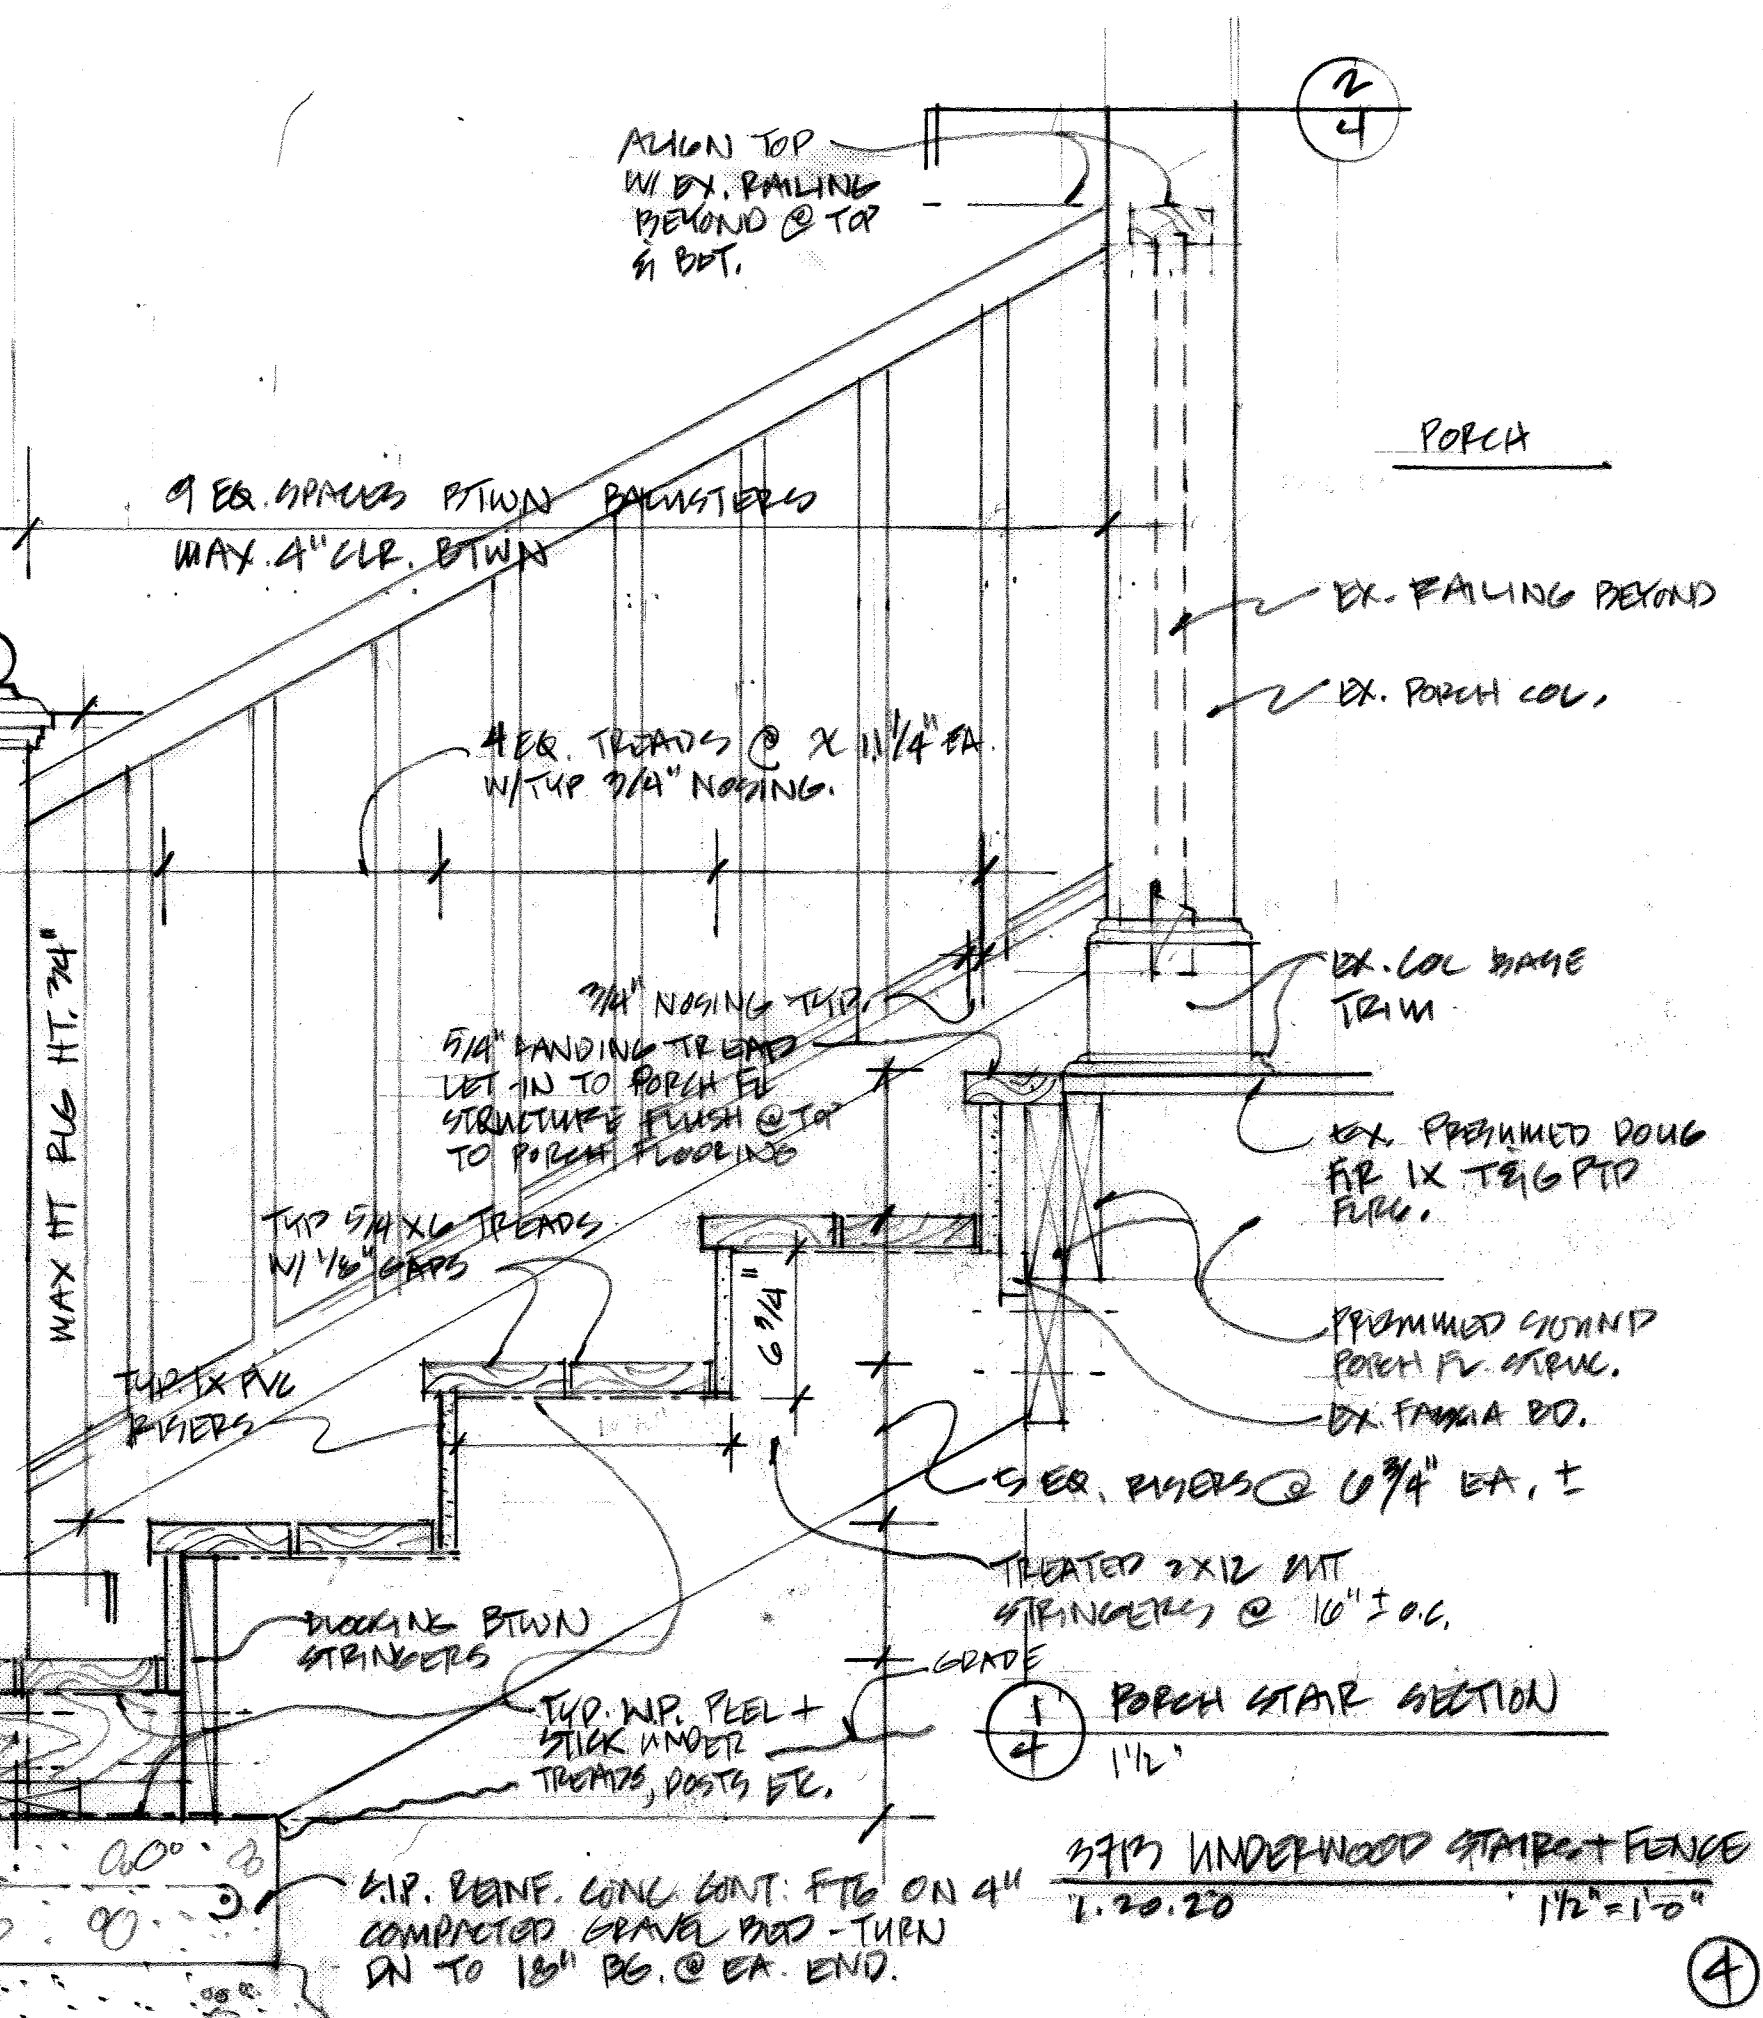 2
4
ALIGN TOP
W/ EX. RAILING
BEYOND @ TOP
& BOT.
PORCH
9 EQ. SPACES BTWN BALUSTERS
MAX. 4" CLR. BTWN
EX. RAILING BEYOND
EX. PORCH COL.
4 EQ. TREADS @ X 11 1/4" EA.
W/TYP 3/4" NOSING.
MAX HT RLG HT. 34"
EX. COL BASE
TRIM
3/4" NOSING TYP.
5/4" LANDING TREAD
LET-IN TO PORCH FL
STRUCTURE FLUSH @ TOP
TO PORCH FLOORING
EX. PRESUMED DOUG
FIR 1X T&G PTD
FLRG.
TYP 5/4 X6 TREADS
W/ 1/8" GAPS
6 3/4"
PRESUMED SOUND
PORCH FL. STRUC.
EX. FASCIA BD.
TYP. 1X PVC
RISERS
5 EQ. RISERS @ 6 3/4" EA. ±
TREATED 2X12 CUT
STRINGERS @ 16" ± O.C.
BLOCKING BTWN
STRINGERS
GRADE
TYP. W.P. PEEL +
STICK UNDER
TREADS, POSTS ETC.
1
4
PORCH STAIR SECTION
1 1/2"
C.I.P. REINF. CONC. CONT. FTG ON 4"
COMPACTED GRAVEL BED - TURN
DN TO 18" BG. @ EA. END.
3713 UNDERWOOD STAIRS + FENCE
1.20.20 1 1/2" = 1'-0"
4